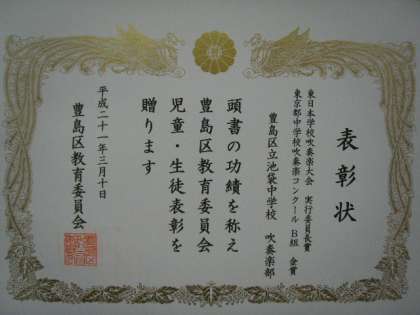 表彰状
東日本学校吹奏楽大会 実行委員長賞
東京都中学校吹奏楽コンクール B組 金賞
豊島区立池袋中学校 吹奏楽部
頭書の功績を称え
豊島区教育委員会
児童・生徒表彰を
贈ります
平成二十一年三月十日
豊島区教育委員会